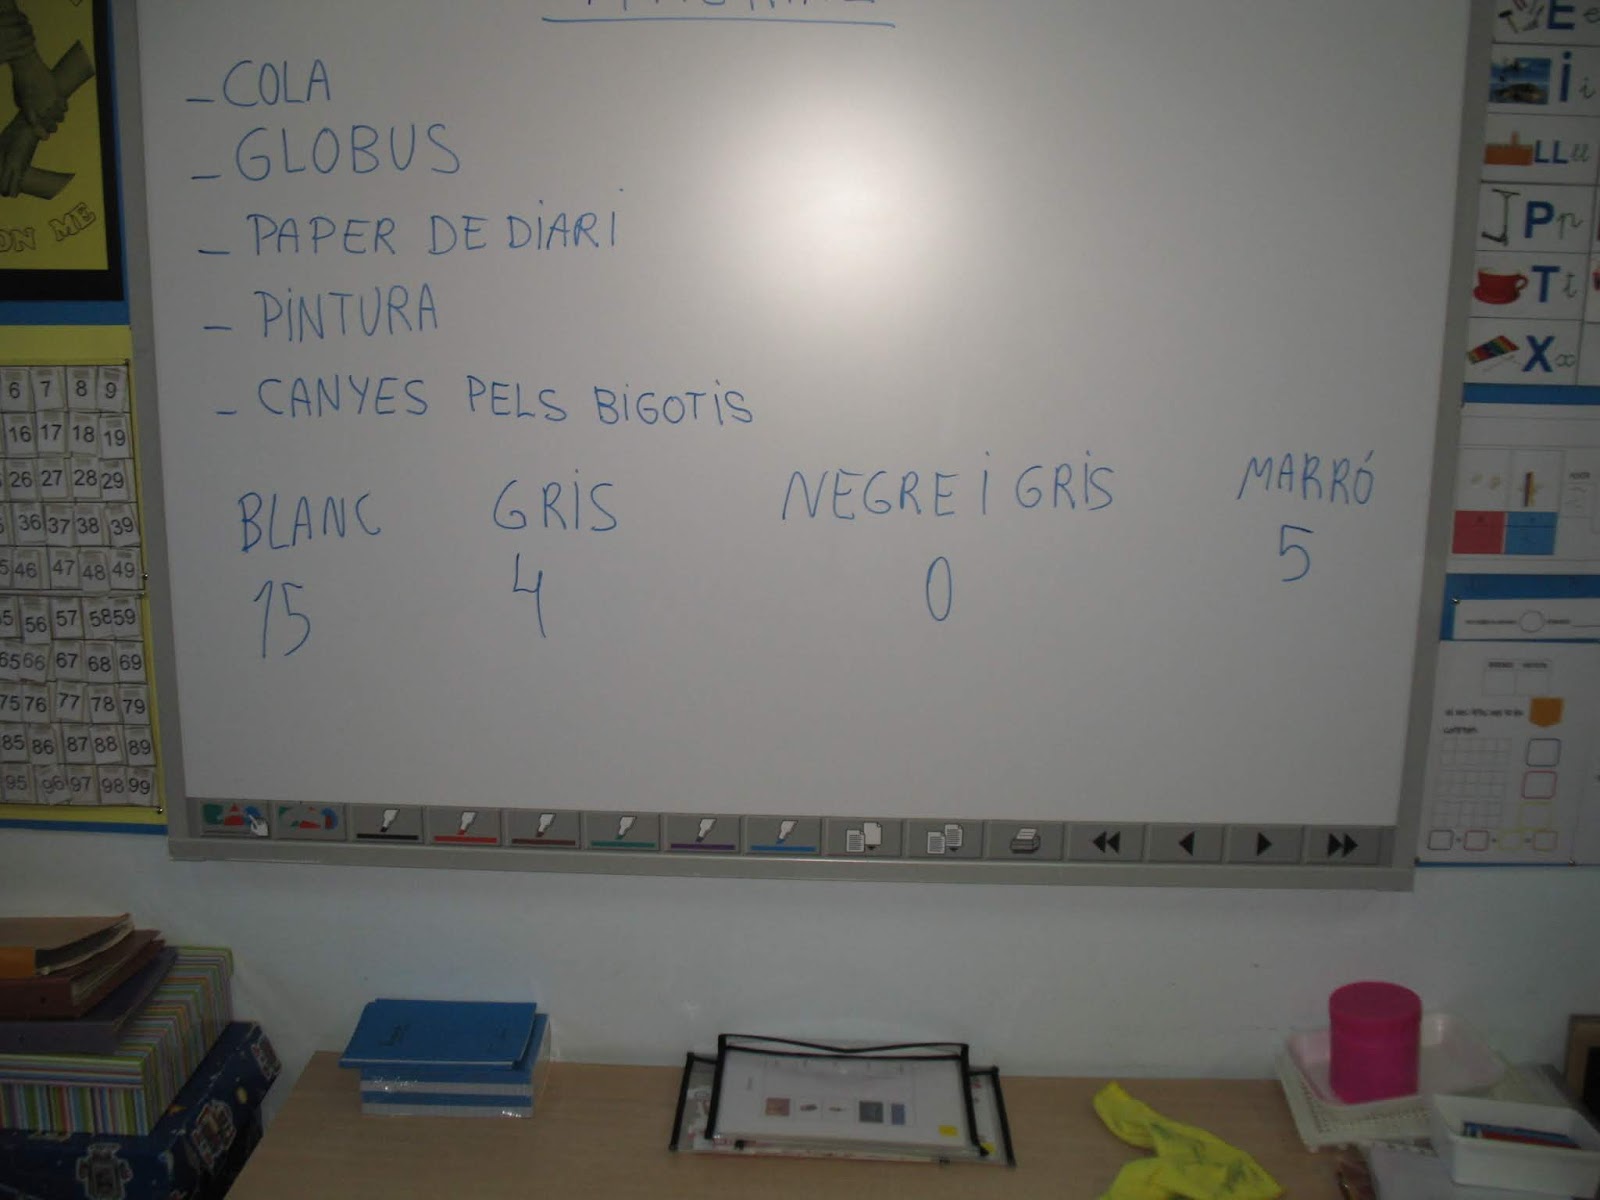 - COLA
- GLOBUS
- PAPER DE DIARI
- PINTURA
- CANYES PELS BIGOTIS
BLANC GRIS NEGRE I GRIS MARRÓ
15 4 0 5
ON ME
6 7 8 9
16 17 18 19
26 27 28 29
36 37 38 39
46 47 48 49
56 57 58 59
65 66 67 68 69
75 76 77 78 79
85 86 87 88 89
95 96 97 98 99
E e
i i
LL ll
P p
T t
X x